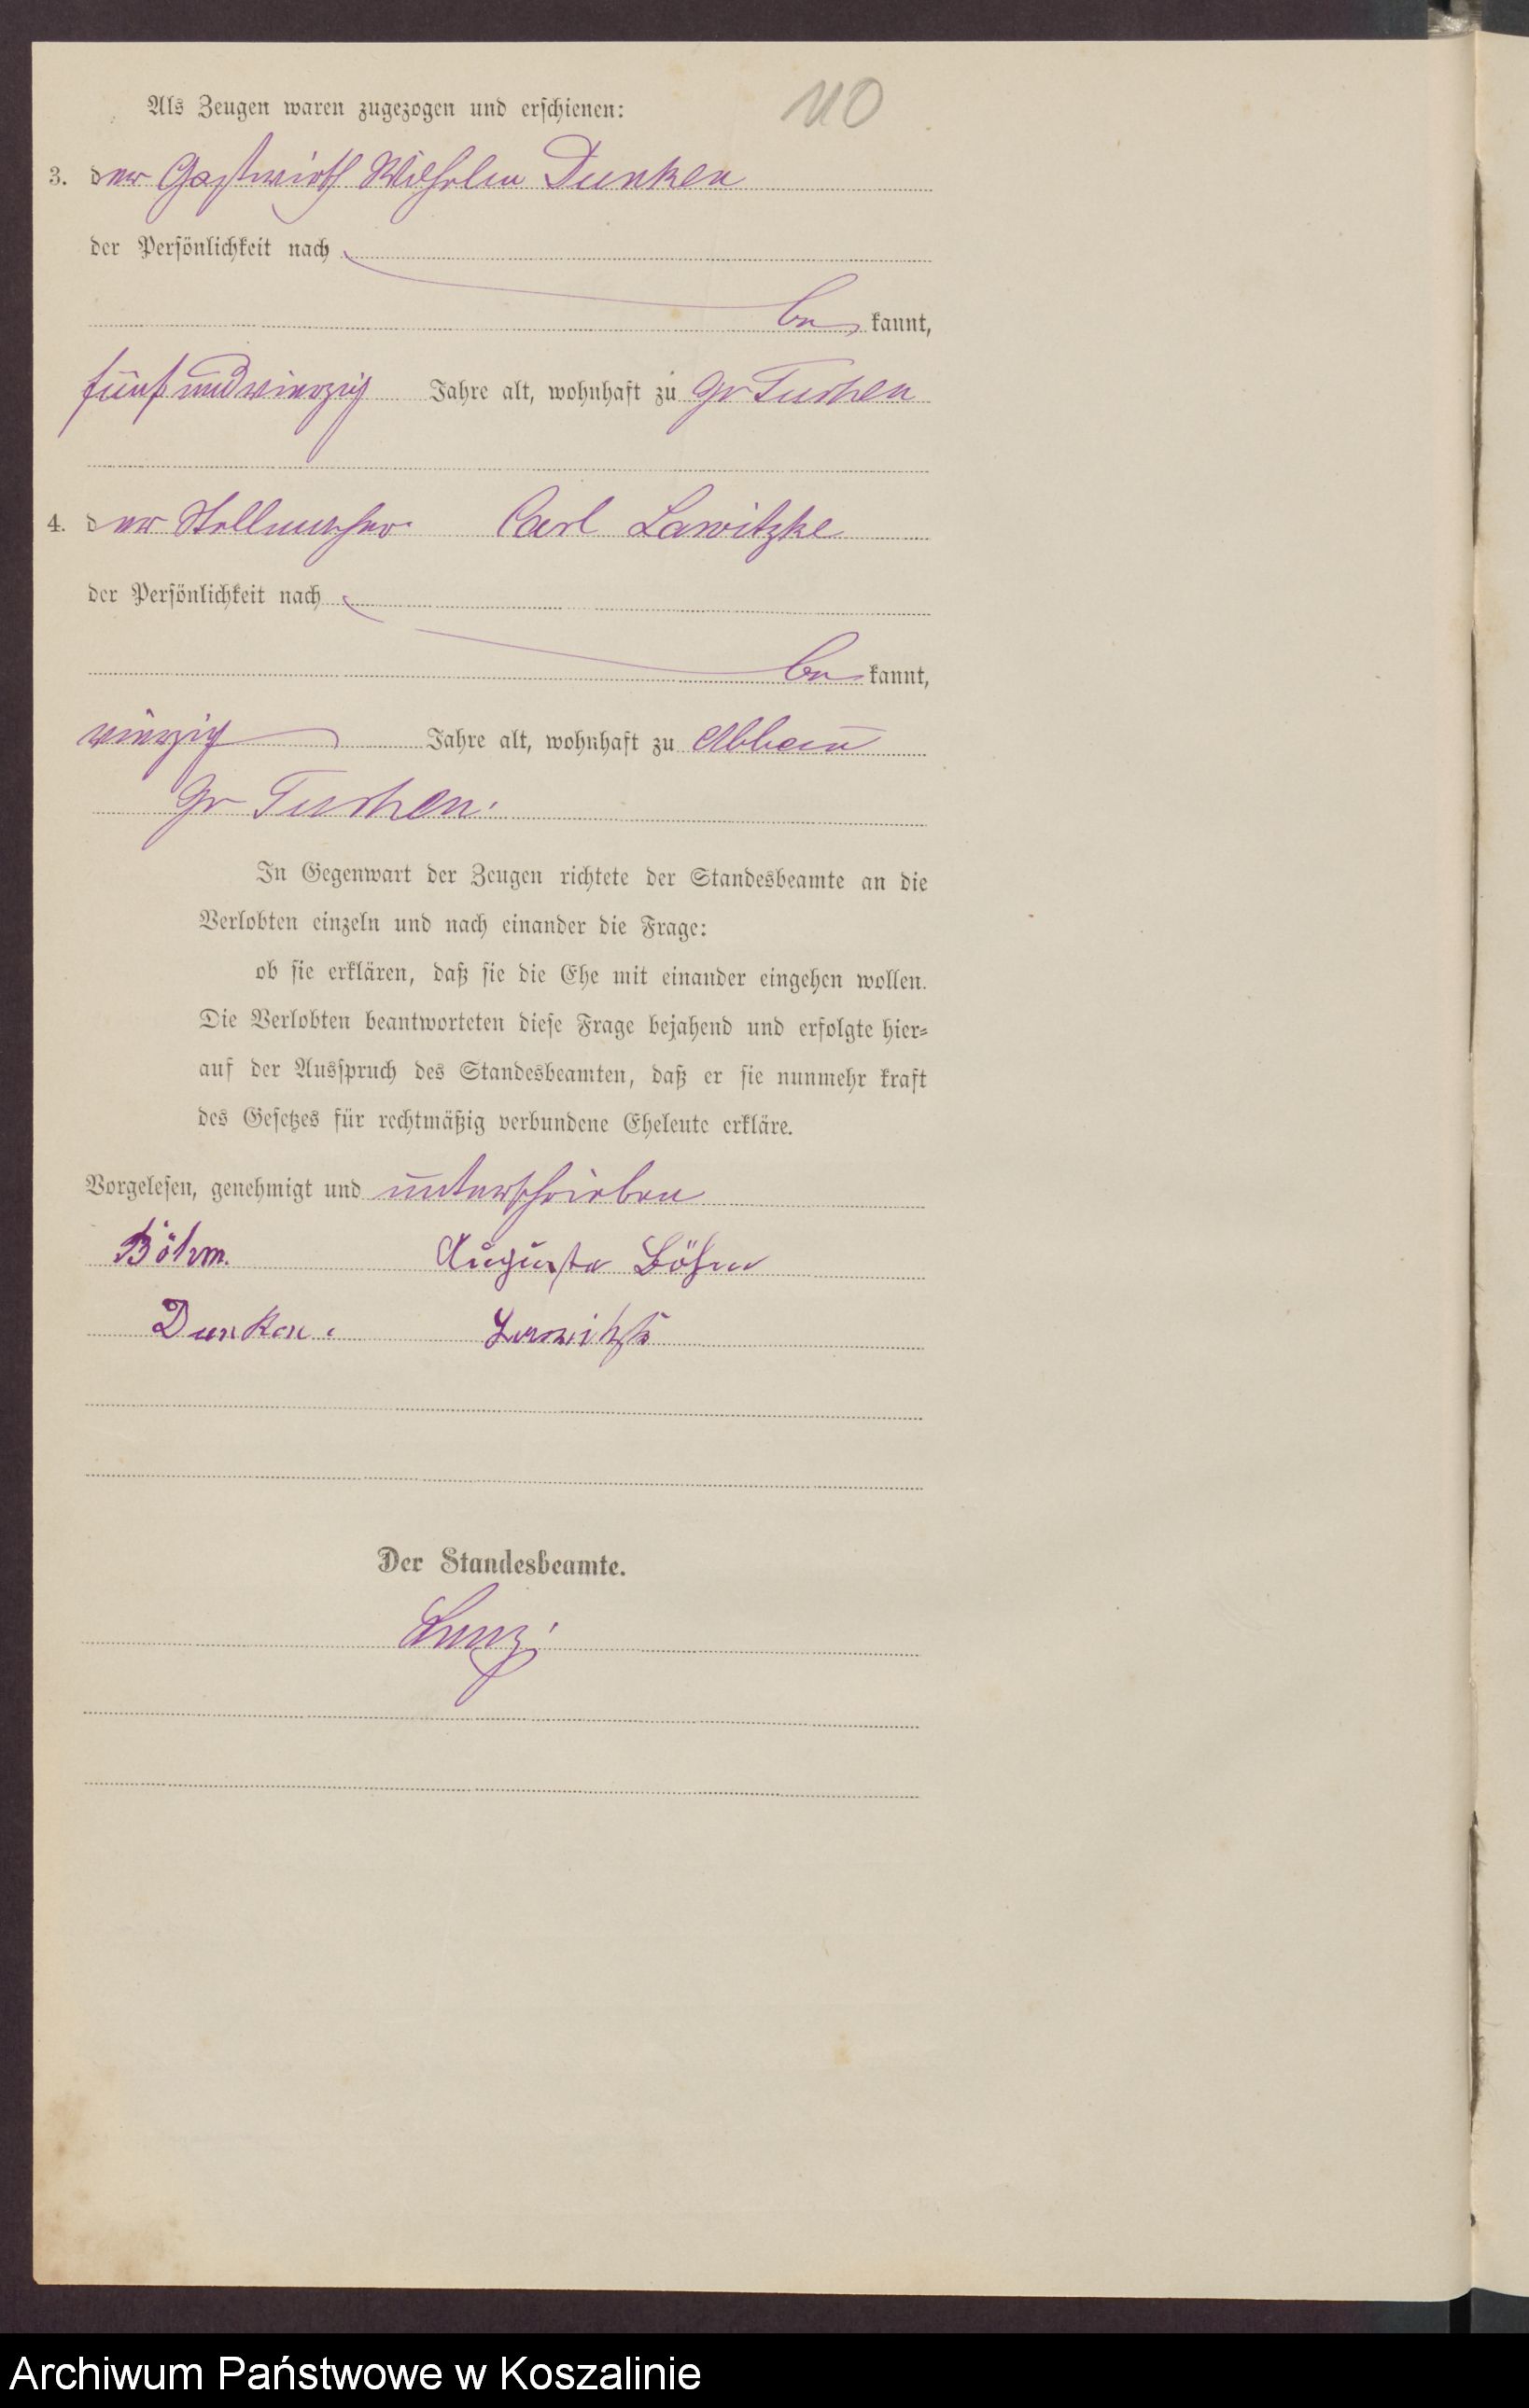 110
Als Zeugen waren zugezogen und erschienen:
3. der Gastwirth Wilhelm Dunken
der Persönlichkeit nach
be kannt,
fünf und vierzig Jahre alt, wohnhaft zu Gr Tuchen
4. der Stellmacher Carl Lawitzke
der Persönlichkeit nach
be kannt,
vierzig Jahre alt, wohnhaft zu Abbau
Gr Tuchen.
In Gegenwart der Zeugen richtete der Standesbeamte an die
Verlobten einzeln und nach einander die Frage:
ob sie erklären, daß sie die Ehe mit einander eingehen wollen.
Die Verlobten beantworteten diese Frage bejahend und erfolgte hier-
auf der Ausspruch des Standesbeamten, daß er sie nunmehr kraft
des Gesetzes für rechtmäßig verbundene Eheleute erkläre.
Vorgelesen, genehmigt und unterschrieben
Böhm. Auguste Böhm
Dunken. Lawitzke
Der Standesbeamte.
Archiwum Państwowe w Koszalinie